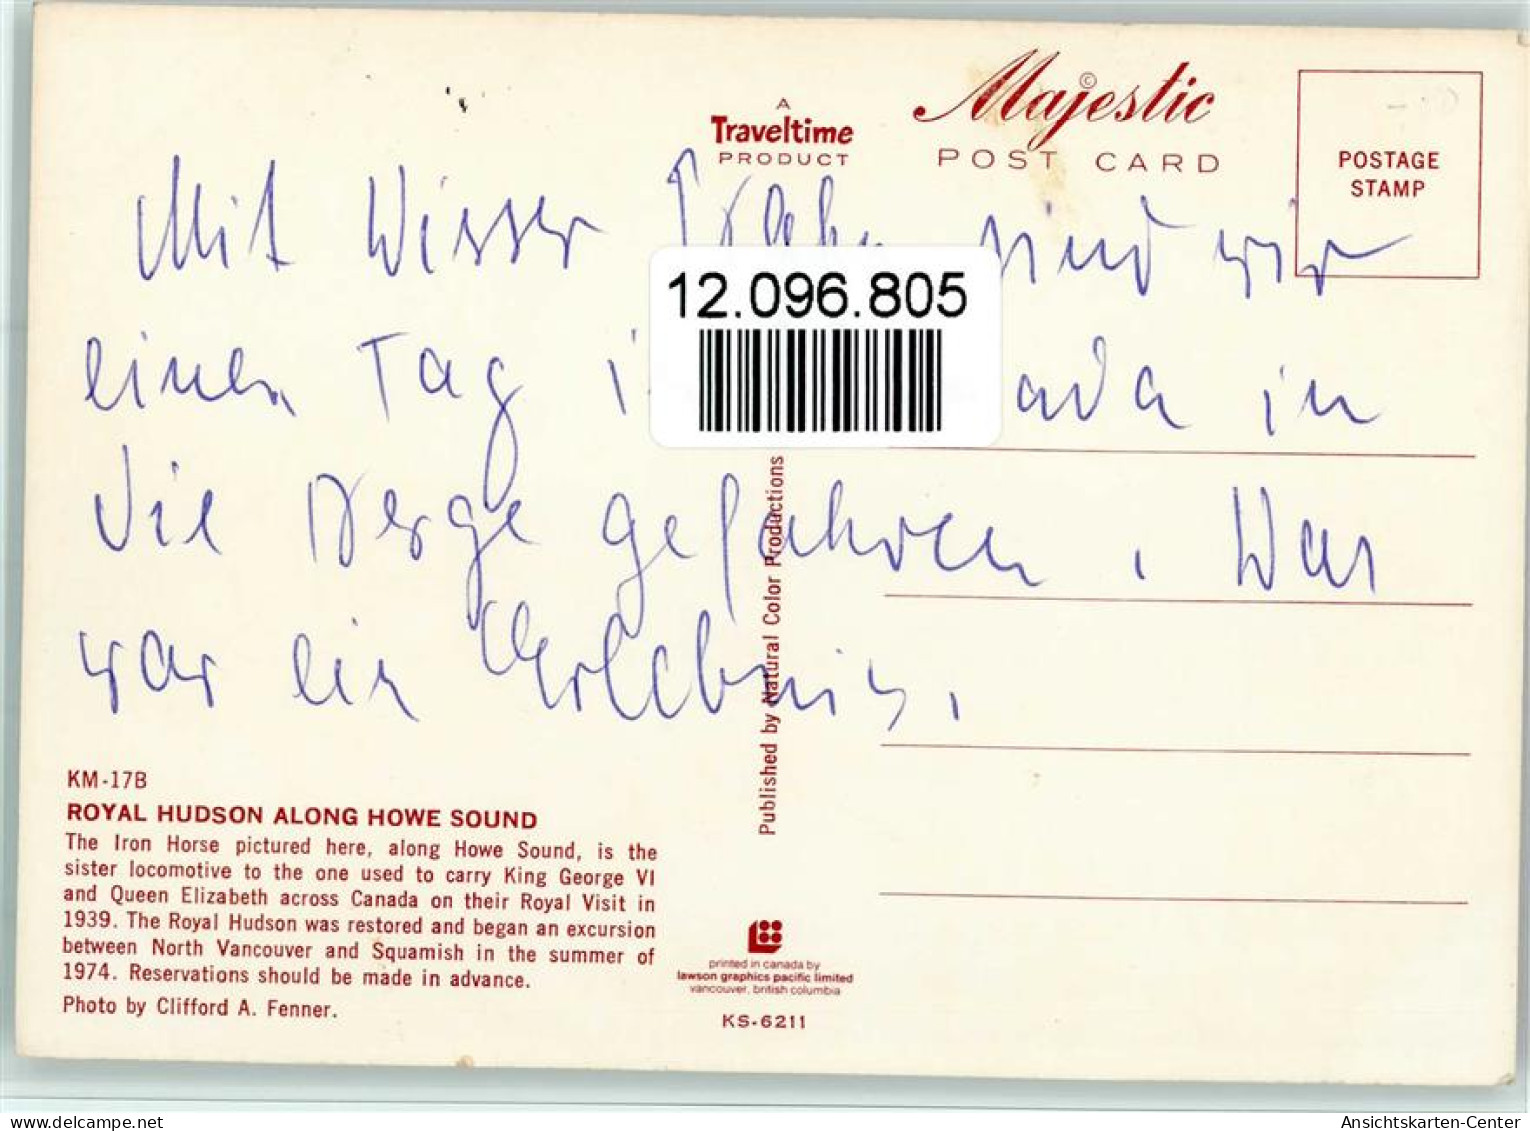 A
Traveltime
PRODUCT
Majestic ©
POST CARD
POSTAGE
STAMP
Mit Wisser Bahn sind wir
einen Tag i ada in
die Berge gefahren. War
war ein Erlebnis.
12.096.805
Published by Natural Color Productions
KM-17B
ROYAL HUDSON ALONG HOWE SOUND
The Iron Horse pictured here, along Howe Sound, is the
sister locomotive to the one used to carry King George VI
and Queen Elizabeth across Canada on their Royal Visit in
1939. The Royal Hudson was restored and began an excursion
between North Vancouver and Squamish in the summer of
1974. Reservations should be made in advance.
Photo by Clifford A. Fenner.
printed in canada by
lawson graphics pacific limited
vancouver, british columbia
KS-6211
www.delcampe.net
Ansichtskarten-Center